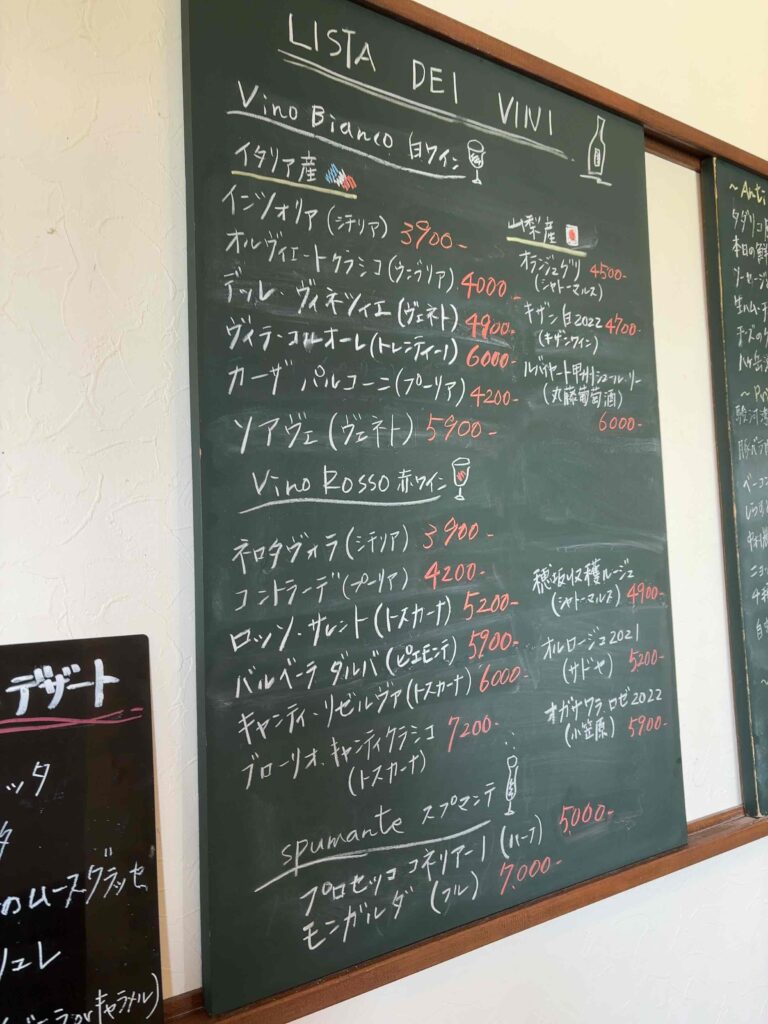 LISTA DEI VINI
Vino Bianco 白ワイン
イタリア産
インツォリア (シチリア) 3900-
オルヴィエートクラシコ (ウンブリア) 4000-
デッレ・ヴィネツィエ (ヴェネト) 4900-
ヴィラ・コルオーレ (トレンティーノ) 6000-
カーザ パルコーニ (プーリア) 4200-
ソアヴェ (ヴェネト) 5900-
山梨産
オランジュグリ 4500-
(シャトーマルス)
キザン白2022 4700-
(キザンワイン)
ルバイヤート甲州シュール・リー
(丸藤葡萄酒)
6000-
Vino Rosso 赤ワイン
ネロダヴォラ (シチリア) 3900-
コントラーデ (プーリア) 4200-
ロッソ・サレント (トスカーナ) 5200-
バルベーラ ダルバ (ピエモンテ) 5900-
キャンティ・リゼルヴァ (トスカーナ) 6000-
ブローリオ、キャンティクラシコ 7200-
(トスカーナ)
穂坂収穫ルージュ
(シャトーマルス) 4900-
オルロージュ2021
(サドヤ) 5200-
オガサワラ ロゼ2022
(小笠原) 5900-
spumante スプマンテ
プロセッコ コネリアーノ (ハーフ) 5,000-
モンガルダ (フル) 7,000-
デザート
ッタ
のムースグラッセ
ュレ
orキャラメル)
~Anti
本日の鮮
ソーセージ
生ハム・チ
チーズの
八ヶ岳
駿河湾
ベーコン
しらす